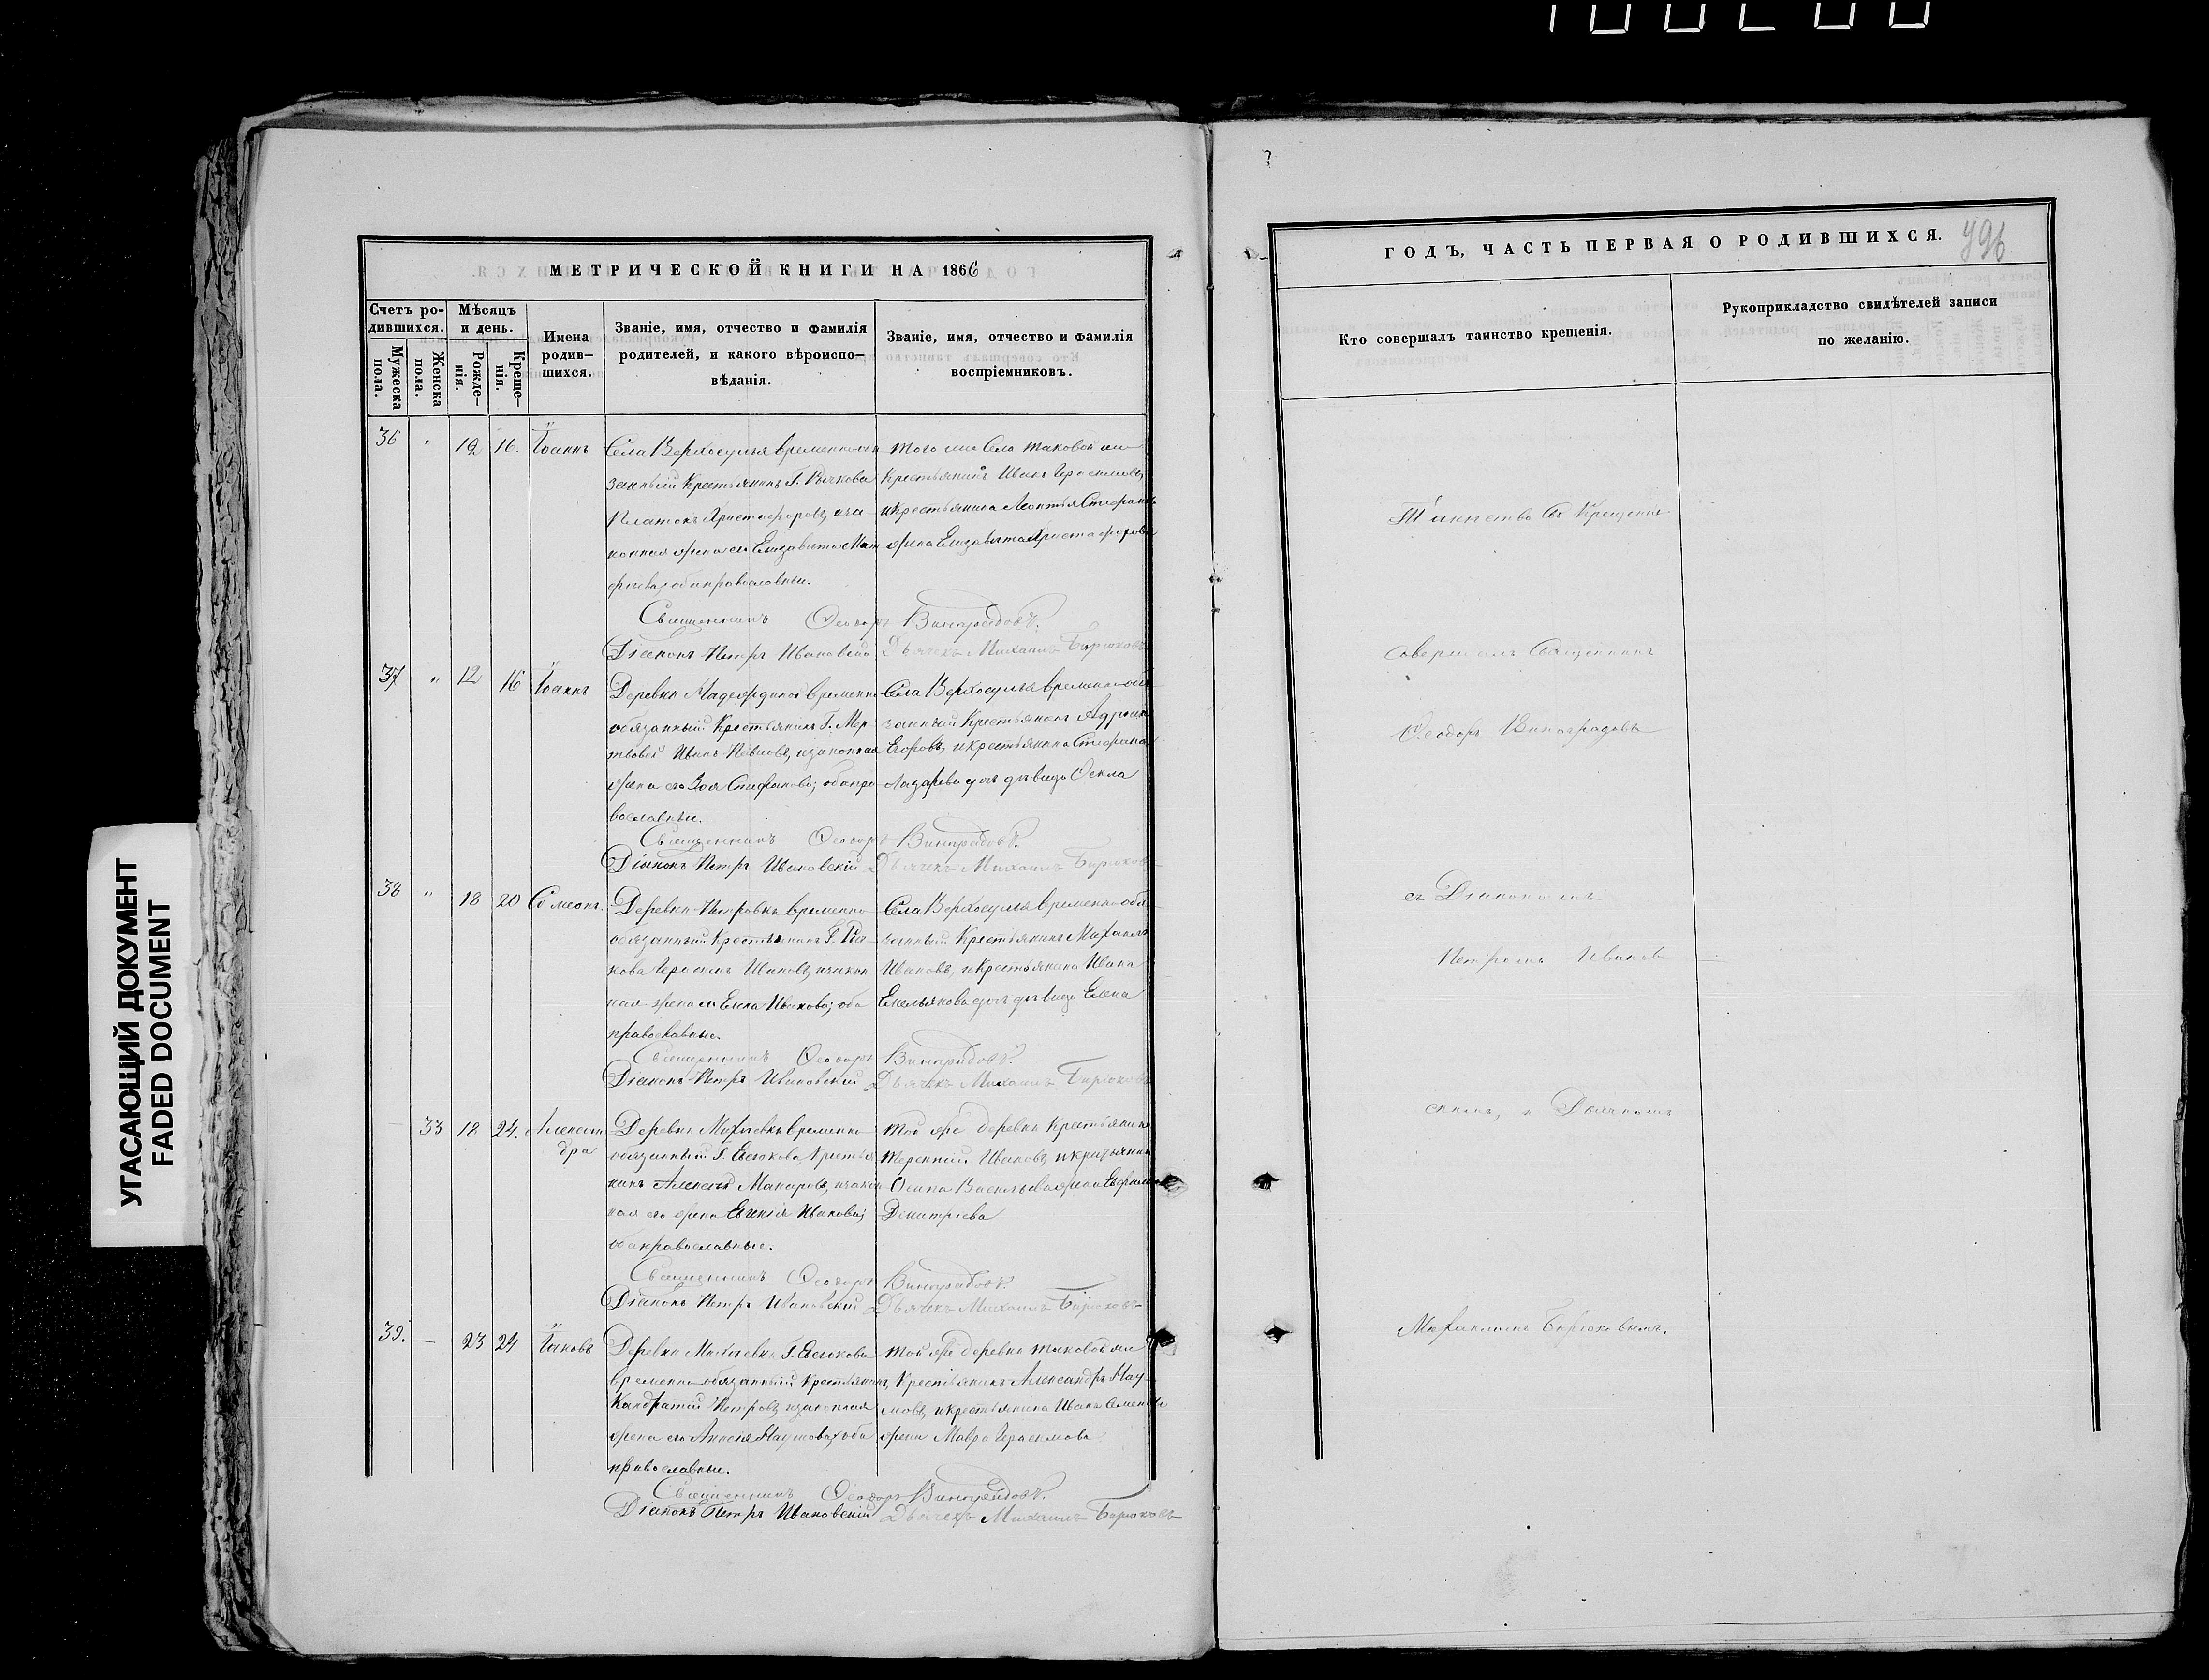 МЕТРИЧЕСКОЙ КНИГИ НА 1866
Счетъ ро-
дившихся.
Мужеска
пола.
Женска
пола.
Мѣсяцъ
и день.
Рожде-
нія.
Креще-
нія.
Имена
родив-
шихся.
Званіе, имя, отчество и фамилія
родителей, и какого вѣроиспо-
вѣданія.
Званіе, имя, отчество и фамилія
воспріемниковъ.
36 " 12 16. Іоаннъ
Села Верхосулья временно-обя
занный Крестьянинъ Г.
Платонъ Христофоровъ, и за
конная жена его Елизавета Мат
фѣева; оба православные.
того же Села таковой же
Крестьянинъ Иванъ Герасимовъ,
и крестьянина Леонтія Стефанова
жена Елизавета Христофорова
Священникъ Ѳеодоръ Виноградовъ.
Діаконъ Петръ Ивановскій Дьячекъ Михаилъ Бирюковъ
37 " 12 16 Іоаннъ
Деревни временно
обязанный Крестьянинъ Г. Мер-
твовой Иванъ и законная
жена его Зоя Стефанова; оба пра
вославные.
Села Верхосулья временно-обя
занный Крестьянинъ
Егоровъ, и крестьянина Стефана
Лазарева дочь дѣвица Ѳекла
Священникъ Ѳеодоръ Виноградовъ.
Діаконъ Петръ Ивановскій Дьячекъ Михаилъ Бирюковъ
38 " 18 20 Симеонъ.
Деревни Петровки временно
обязанный Крестьянинъ Г.
Герасимъ Ивановъ, и закон
ная жена его Елена Иванова; оба
православные.
Села Верхосулья временно обя
занный Крестьянинъ Михаилъ
Ивановъ, и Крестьянина Ивана
Емельянова дочь дѣвица Елена
Священникъ Ѳеодоръ Виноградовъ.
Діаконъ Петръ Ивановскій Дьячекъ Михаилъ Бирюковъ
33 18 24. Александра
Деревни временно
обязанный Г. Евсюкова Крестья
нинъ Алексѣй Макаровъ, и закон
ная его жена Евгенія Иванова;
оба православные.
той же деревни Крестьянинъ
Терентій Ивановъ, и крестьянина
Осипа Васильева жена
Димитріева
Священникъ Ѳеодоръ Виноградовъ.
Діаконъ Петръ Ивановскій Дьячекъ Михаилъ Бирюковъ
39. – 23 24 Іаковъ
Деревни Г. Евсюкова
временно-обязанный Крестьянинъ
Кандратій Петровъ, и законная
жена его Наумова; оба
православные.
той же деревни таковой же
Крестьянинъ Александръ Нау-
мовъ, и крестьянина Ивана Семенова
жена Мавра Герасимова
Священникъ Ѳеодоръ Виноградовъ.
Діаконъ Петръ Ивановскій Дьячекъ Михаилъ Бирюковъ
ГОДЪ, ЧАСТЬ ПЕРВАЯ О РОДИВШИХСЯ.
796
Кто совершалъ таинство крещенія.
Рукоприкладство свидѣтелей записи
по желанію.
Таинство Св Крещенія
Совершалъ Священникъ
Ѳеодоръ Виноградовъ
съ Діакономъ
Петромъ Иванов
скимъ, и Дьячкомъ
Михаиломъ Бирюковымъ.
УГАСАЮЩИЙ ДОКУМЕНТ
FADED DOCUMENT